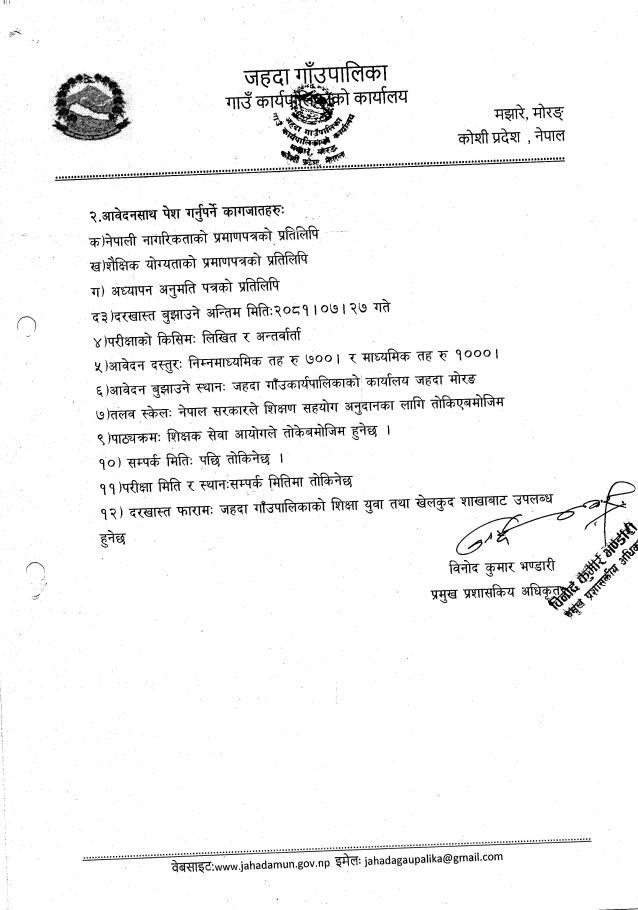 जहदा गाँउपालिका
गाउँ कार्यपालिकाको कार्यालय
जहदा गाउँपालिका
गाउँ कार्यपालिकाको कार्यालय
मझारे, मोरङ
कोशी प्रदेश, नेपाल
मझारे, मोरङ्
कोशी प्रदेश , नेपाल
२.आवेदनसाथ पेश गर्नुपर्ने कागजातहरुः
क)नेपाली नागरिकताको प्रमाणपत्रको प्रतिलिपि
ख)शैक्षिक योग्यताको प्रमाणपत्रको प्रतिलिपि
ग) अध्यापन अनुमति पत्रको प्रतिलिपि
द३)दरखास्त बुझाउने अन्तिम मितिः२०८१।०७।२७ गते
४)परीक्षाको किसिमः लिखित र अन्तर्वार्ता
५)आवेदन दस्तुरः निम्नमाध्यमिक तह रु ७००। र माध्यमिक तह रु १०००।
६)आवेदन बुझाउने स्थानः जहदा गाँउकार्यपालिकाको कार्यालय जहदा मोरङ
७)तलव स्केलः नेपाल सरकारले शिक्षण सहयोग अनुदानका लागि तोकिएबमोजिम
९)पाठ्यक्रमः शिक्षक सेवा आयोगले तोकेबमोजिम हुनेछ ।
१०) सम्पर्क मितिः पछि तोकिनेछ ।
११)परीक्षा मिति र स्थानःसम्पर्क मितिमा तोकिनेछ
१२) दरखास्त फारामः जहदा गाँउपालिकाको शिक्षा युवा तथा खेलकुद शाखाबाट उपलब्ध
हुनेछ
विनोद कुमार भण्डारी
प्रमुख प्रशासकिय अधिकृत
विनोद कुमार भण्डारी
प्रमुख प्रशासकीय अधिकृत
वेबसाइट:www.jahadamun.gov.np इमेलः jahadagaupalika@gmail.com